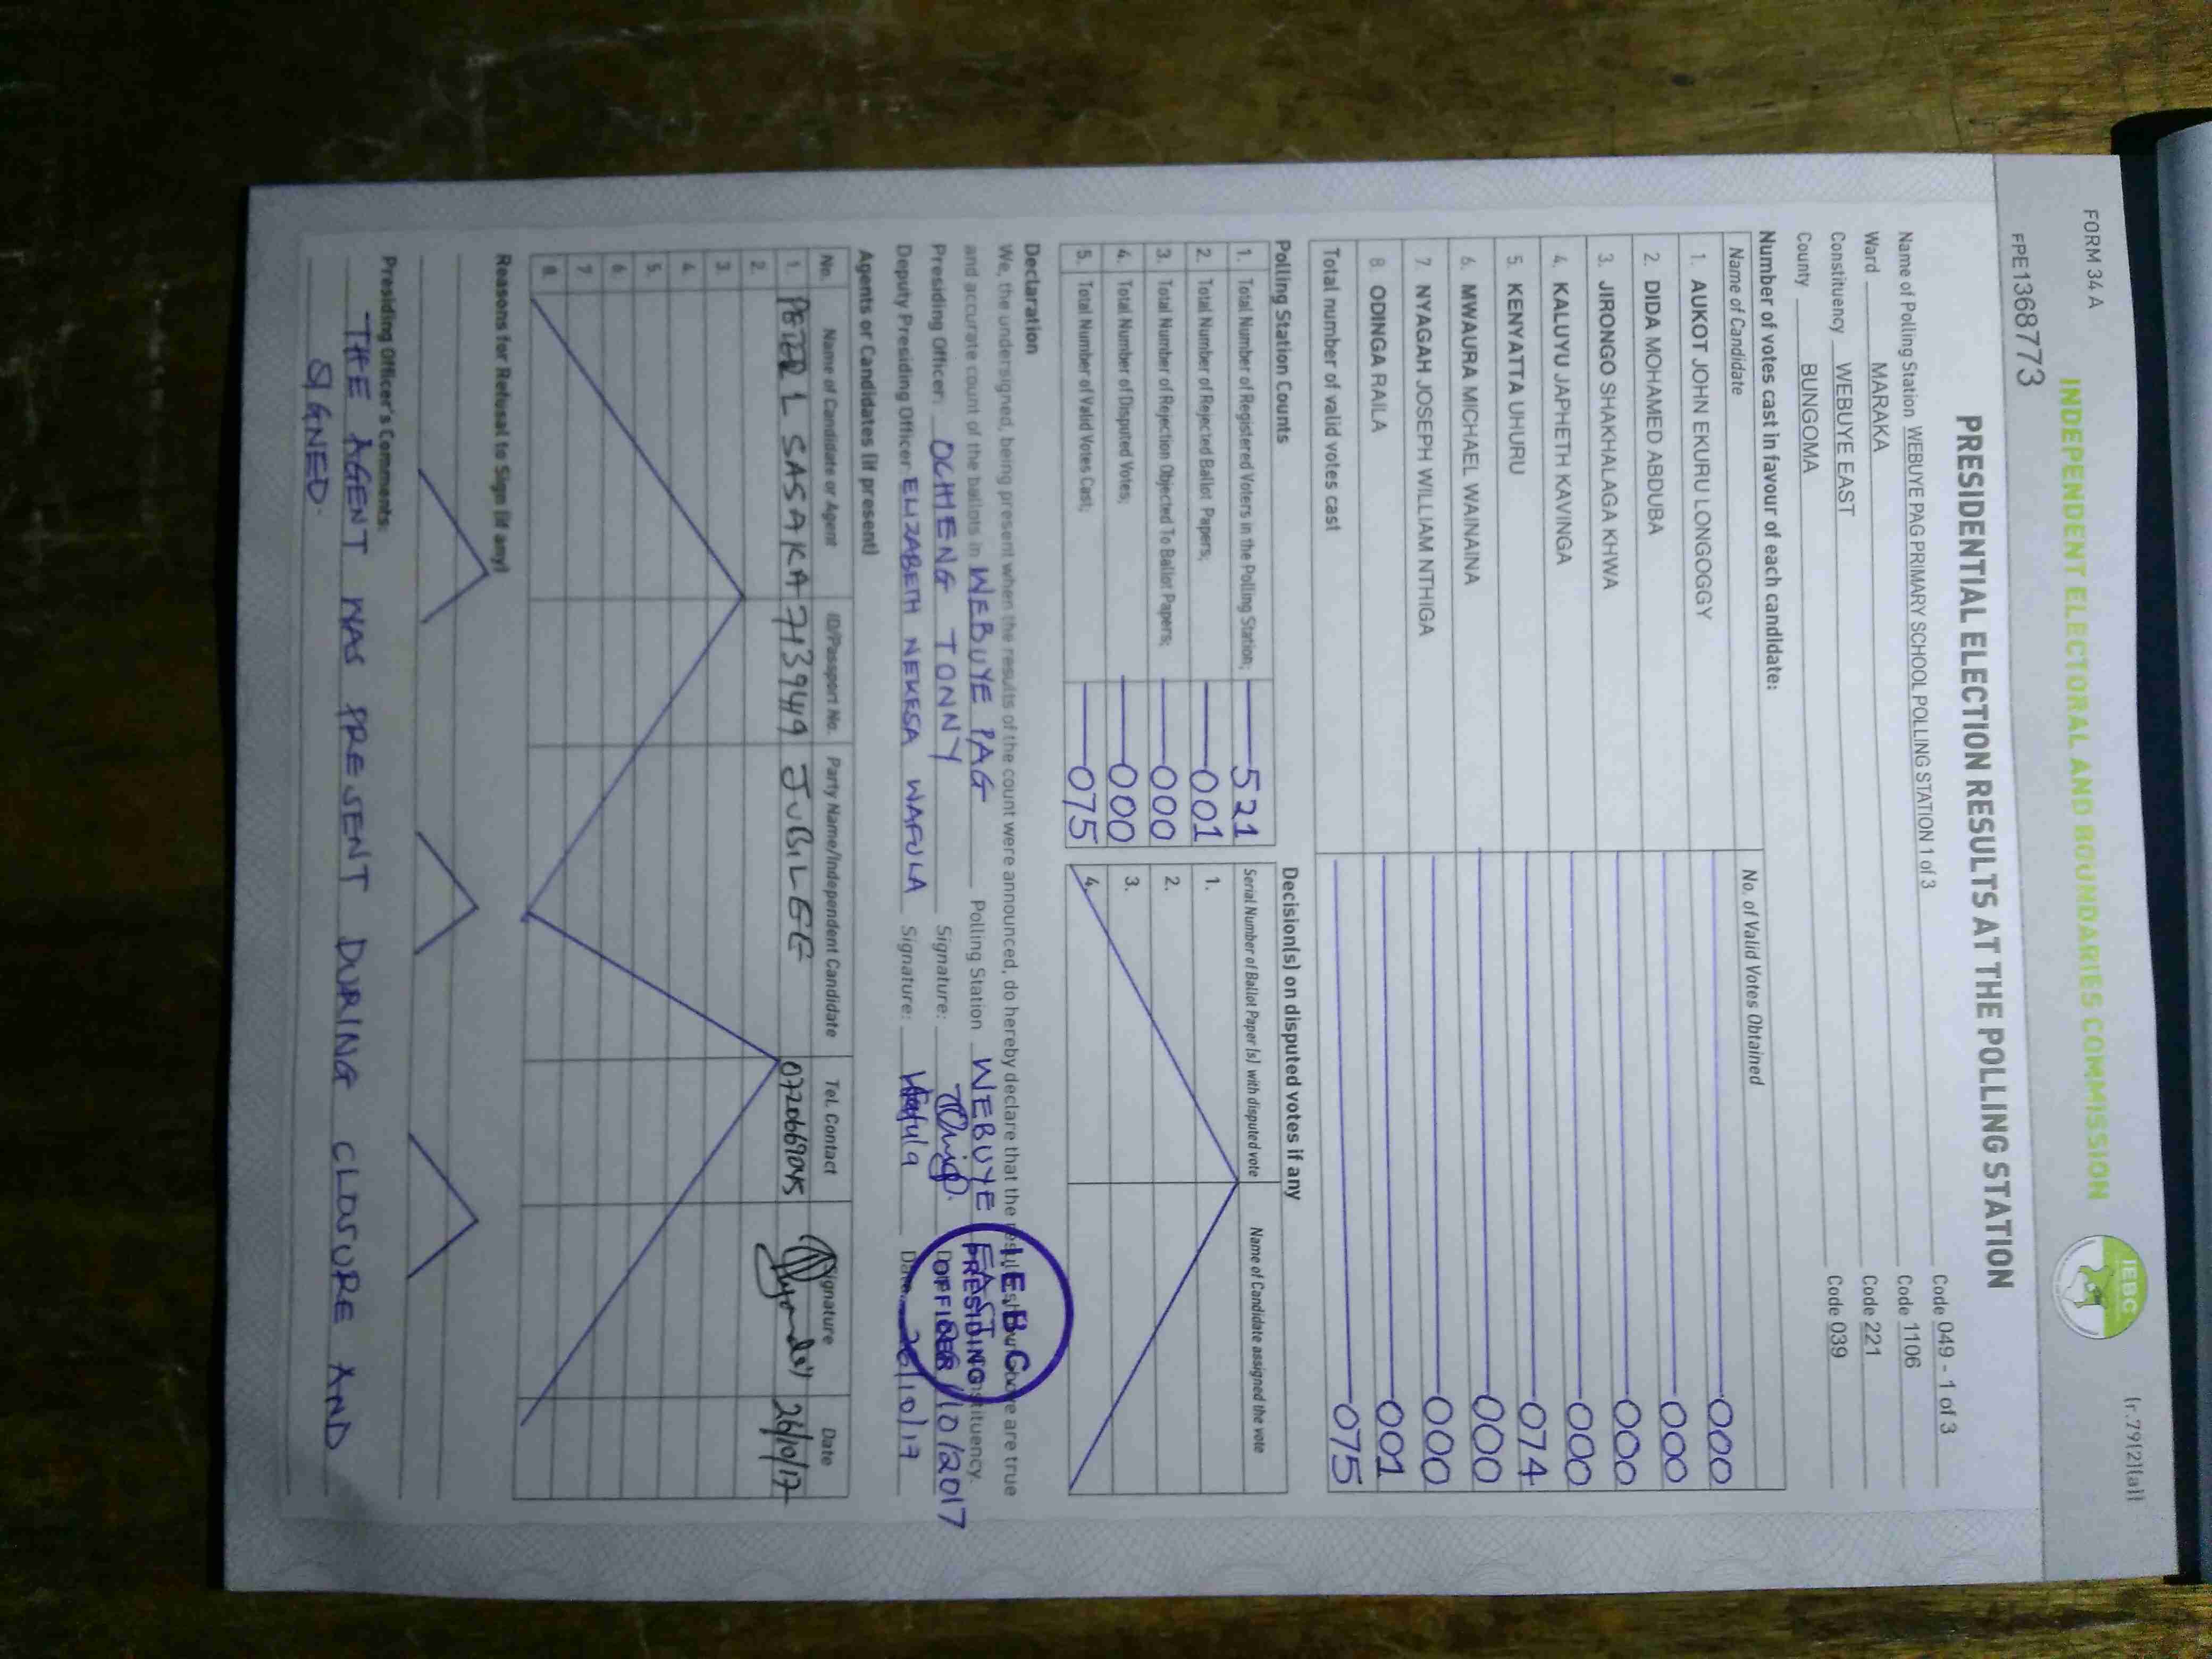 FORM 34 A
(r.79(2)(a))
INDEPENDENT ELECTORAL AND BOUNDARIES COMMISSION
IEBC
FPE1368773
PRESIDENTIAL ELECTION RESULTS AT THE POLLING STATION
Name of Polling Station WEBUYE PAG PRIMARY SCHOOL POLLING STATION 1 of 3 Code 049 - 1 of 3
Ward MARAKA Code 1106
Constituency WEBUYE EAST Code 221
County BUNGOMA Code 039
Number of votes cast in favour of each candidate:
Name of Candidate No. of Valid Votes Obtained
1. AUKOT JOHN EKURU LONGOGGY 000
2. DIDA MOHAMED ABDUBA 000
3. JIRONGO SHAKHALAGA KHWA 000
4. KALUYU JAPHETH KAVINGA 000
5. KENYATTA UHURU 074
6. MWAURA MICHAEL WAINAINA 000
7. NYAGAH JOSEPH WILLIAM NTHIGA 000
8 ODINGA RAILA 001
Total number of valid votes cast 075
Polling Station Counts
1. Total Number of Registered Voters in the Polling Station; 521
2. Total Number of Rejected Ballot Papers; 001
3. Total Number of Rejection Objected To Ballot Papers; 000
4. Total Number of Disputed Votes; 000
5. Total Number of Valid Votes Cast; 075
Decision(s) on disputed votes if any
Serial Number of Ballot Paper (s) with disputed vote Name of Candidate assigned the vote
1.
2.
3.
4.
Declaration
We, the undersigned, being present when the results of the count were announced, do hereby declare that the results shown above are true
and accurate count of the ballots in WEBUYE PAG Polling Station WEBUYE EAST Constituency.
Presiding Officer: OCHIENG TONNY Signature: Date 26/10/2017
Deputy Presiding Officer ELIZABETH NEKESA WAFULA Signature: Wafula Date 26/10/17
I.E.B.C
PRESIDING
OFFICER
Agents or Candidates (if present)
No. Name of Candidate or Agent ID/Passport No. Party Name/Independent Candidate Tel. Contact Signature Date
1. PETER L SASAKA 7139449 JUBILEE 0720669045 26/10/17
2.
3.
4.
5.
6.
7.
8.
Reasons for Refusal to Sign (if any)
Presiding Officer's Comments:
THE AGENT WAS PRESENT DURING CLOSURE AND
SIGNED.